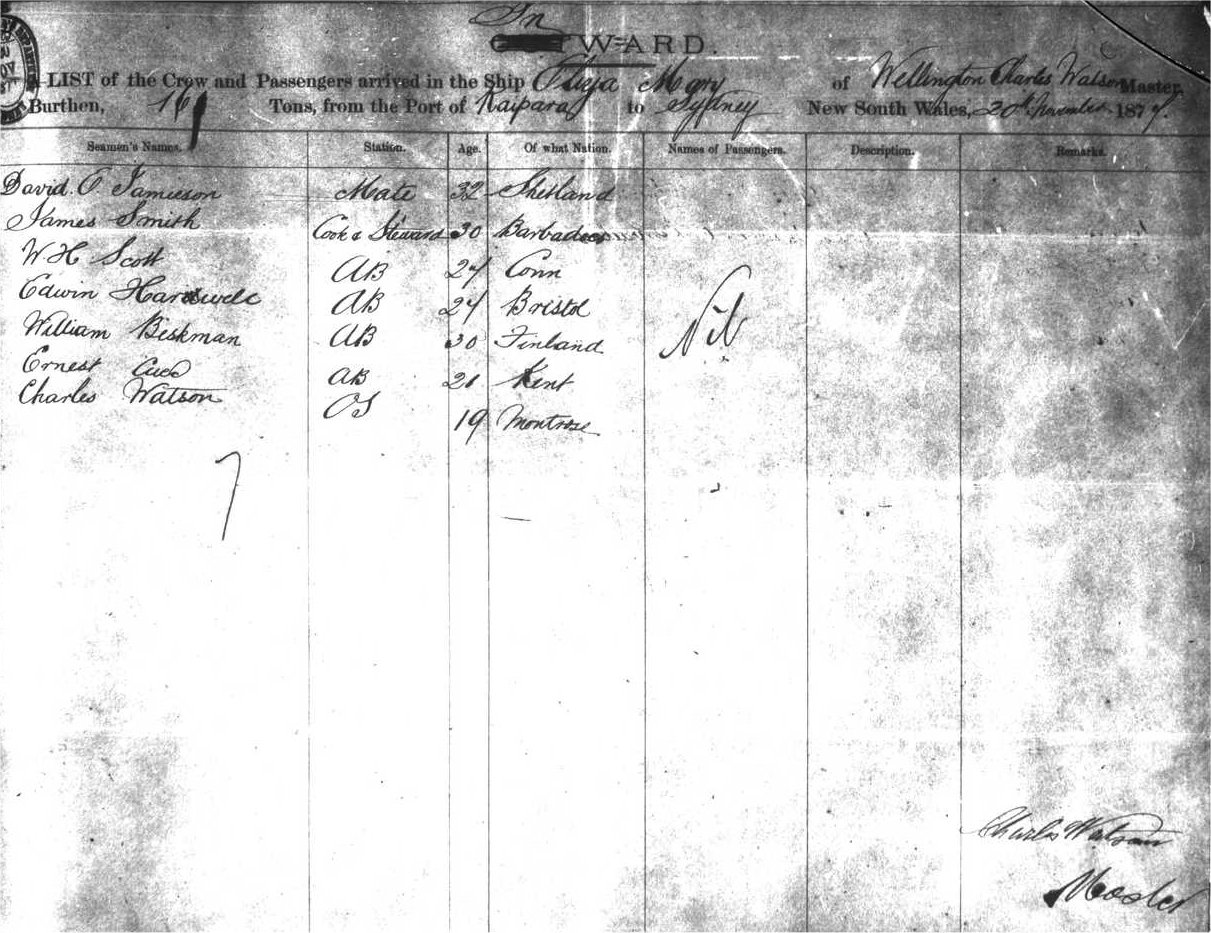 In
WARD.
LIST of the Crew and Passengers arrived in the Ship Mary of Wellington Charles Watson Master,
Burthen, 161 Tons, from the Port of Kaipara to Sydney New South Wales, 20th November 1877.
Seamen's Names. Station. Age. Of what Nation. Names of Passengers. Description. Remarks.
David Jamieson Mate 32 Shetland
James Smith Cook & Steward 30 Barbadoes
W H Scott AB 24 Conn
Edwin AB 24 Bristol
William Beskman AB 30 Finland
Nil
Ernest AB 21 Kent
Charles Watson OS 19 Montrose
7
Charles Watson
Master